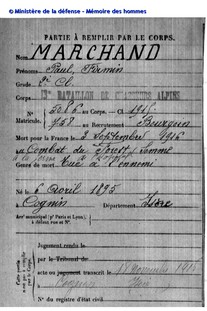 © Ministère de la défense - Mémoire des hommes
PARTIE À REMPLIR PAR LE CORPS.
Nom MARCHAND
Prénoms Paul, Firmin
Grade 2e Cl
Corps BATAILLON DE CHASSEURS ALPINS
N° 5086 au Corps. — Cl. 1915
Matricule. 758 au Recrutement Bourgoin
Mort pour la France le 3 Septembre 1916
au Combat du Forest Somme
Genre de mort Tué à l'ennemi
Né le 6 Avril 1895
Cognin Département Isère
Arr' municipal (p' Paris et Lyon),
à défaut rue et N°.
Jugement rendu le
par le Tribunal de
acte ou jugement transcrit le
N° du registre d'état civil